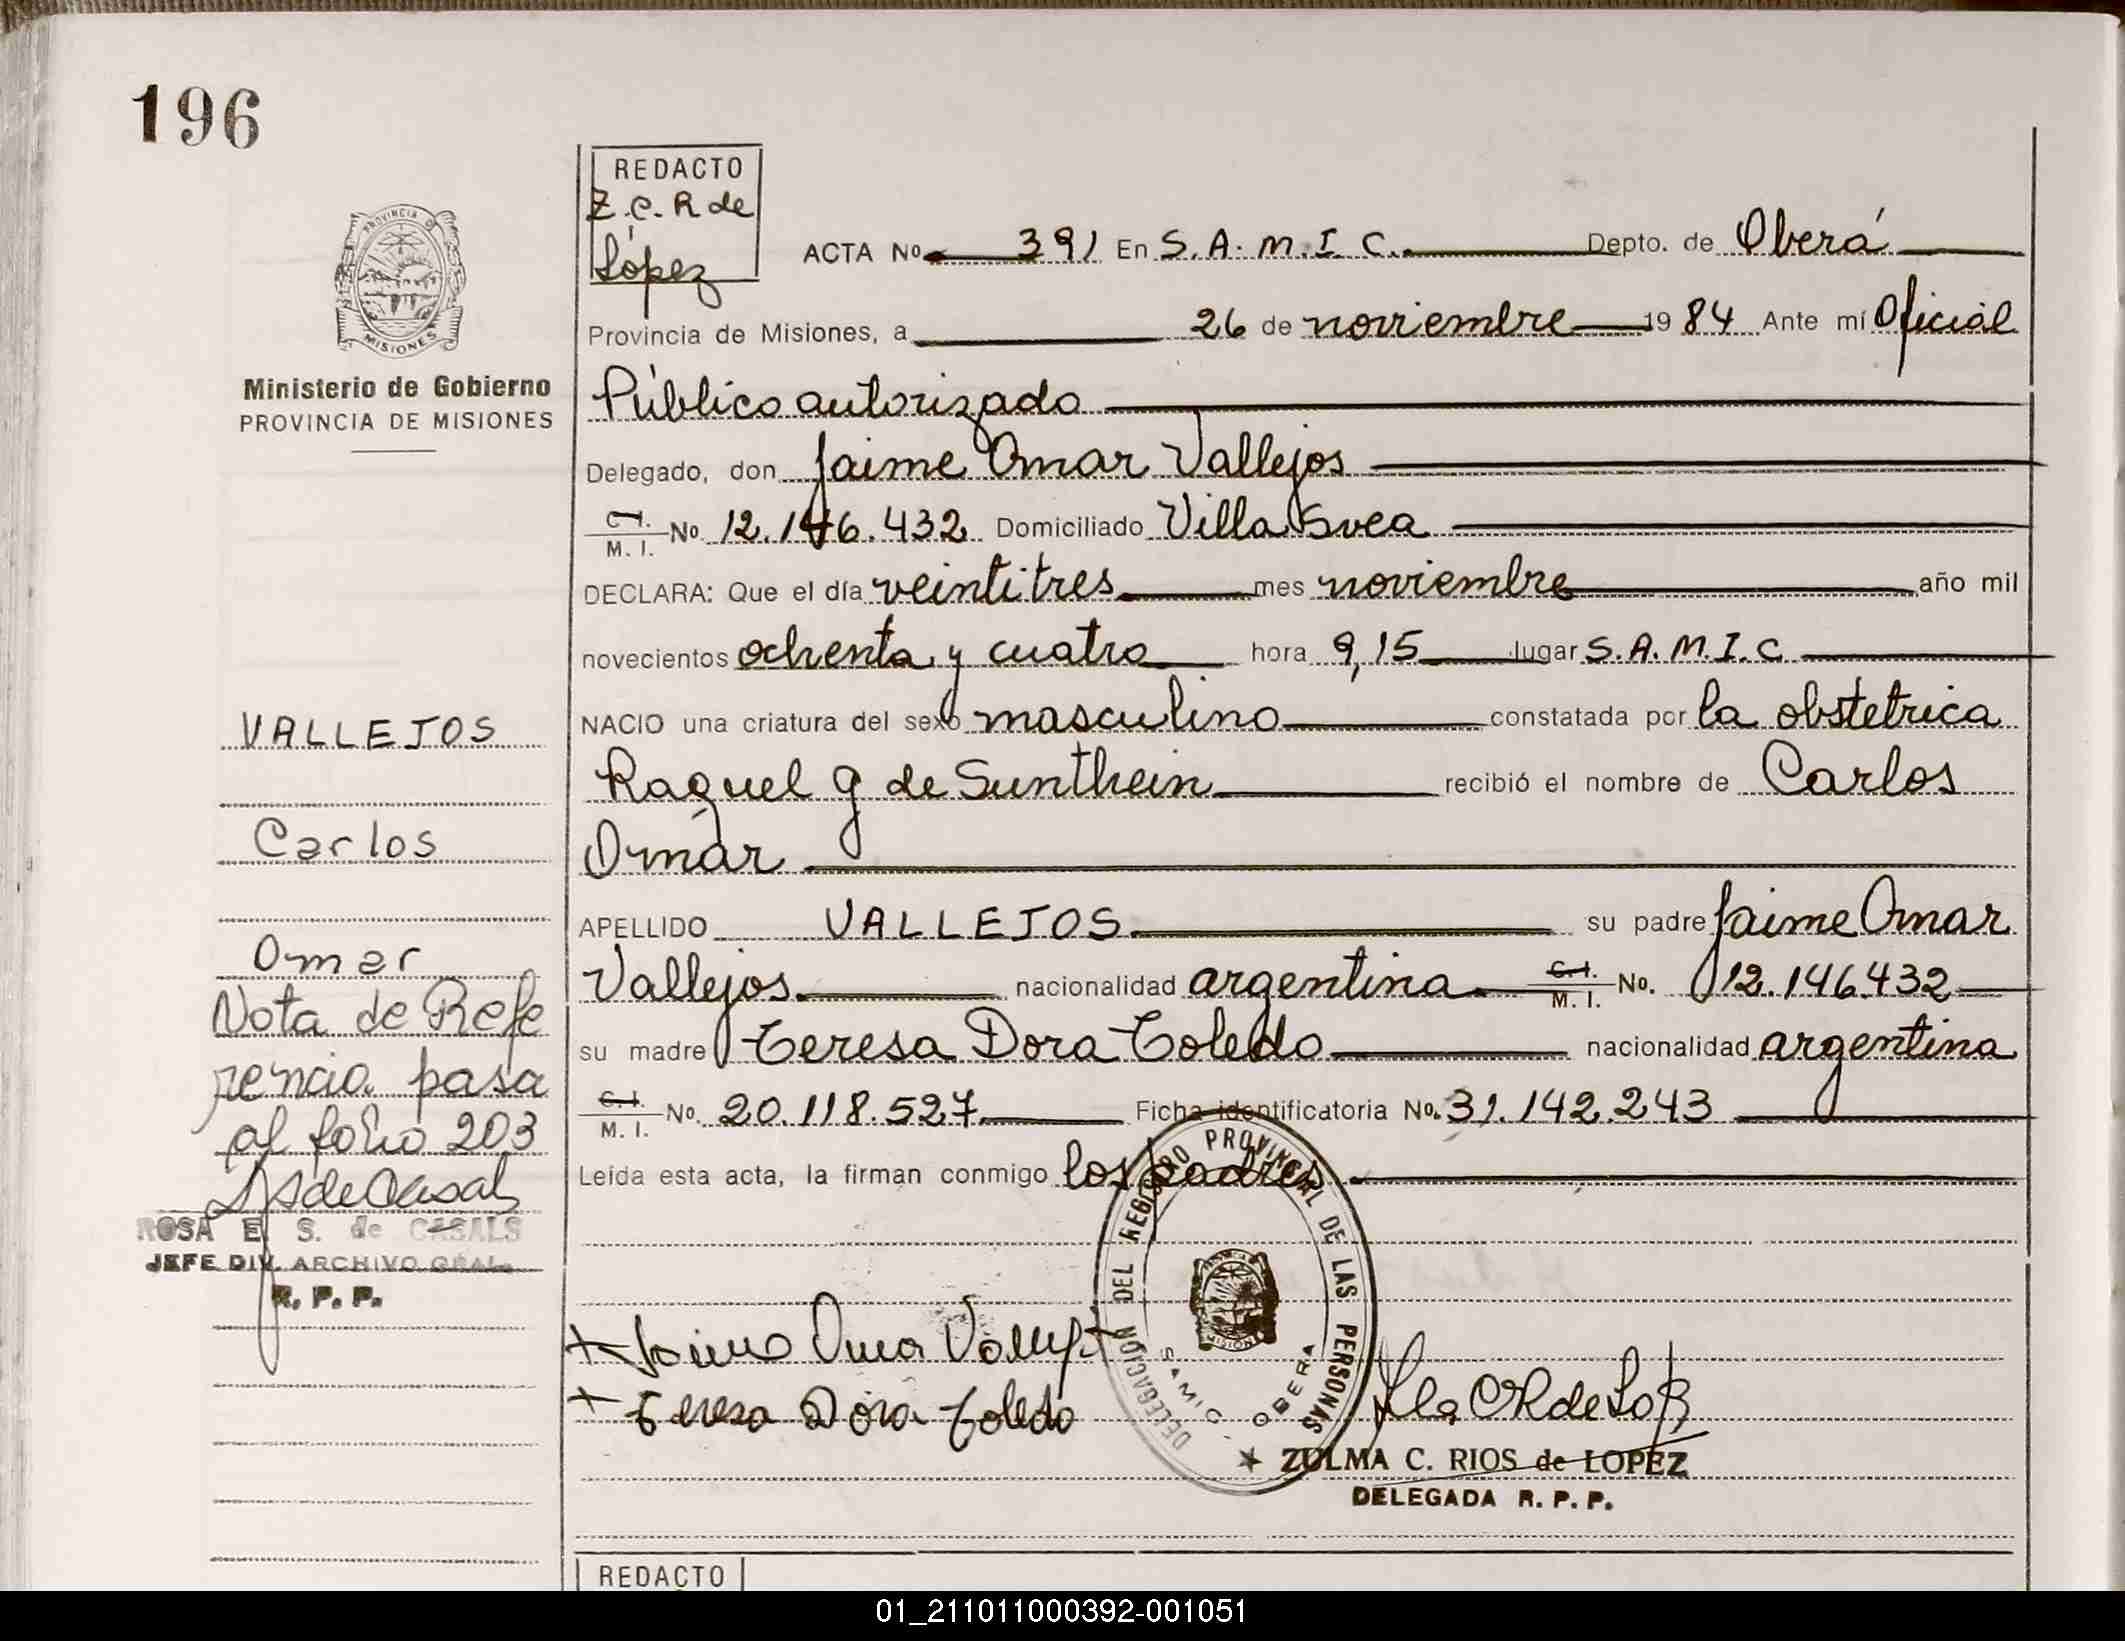 196
REDACTO
Z.C.R de
López
ACTA No 391 En S.A.M.I.C. Depto. de Oberá
Provincia de Misiones, a 26 de noviembre 1984 Ante mí Oficial
Público autorizado
Delegado, don Jaime Omar Vallejos
C.I. M.I. No 12.146.432 Domiciliado Villa Svea
DECLARA: Que el día veintitres mes noviembre año mil
novecientos ochenta y cuatro hora 9,15 lugar S.A.M.I.C
NACIO una criatura del sexo masculino constatada por la obstetrica
Raquel g de Sunthein recibió el nombre de Carlos
Omar
APELLIDO VALLEJOS su padre Jaime Omar
Vallejos nacionalidad argentina C.I. M.I. No. 12.146.432
su madre Teresa Dora Toledo nacionalidad argentina
C.I. M.I. No. 20.118.527 Ficha identificatoria No. 31.142.243
Leída esta acta, la firman conmigo los padres
PROVINCIA DE
MISIONES
Ministerio de Gobierno
PROVINCIA DE MISIONES
VALLEJOS
Carlos
Omar
Nota de Refe
rencia pasa
al folio 203
ROSA E. S. de CASALS
JEFE DIV. ARCHIVO GRAL.
R. P. P.
DELEGACION DEL REGISTRO PROVINCIAL DE LAS PERSONAS
SAMIC - OBERA
Teresa Dora Toledo
ZULMA C. RIOS de LOPEZ
DELEGADA R. P. P.
REDACTO
01_211011000392-001051